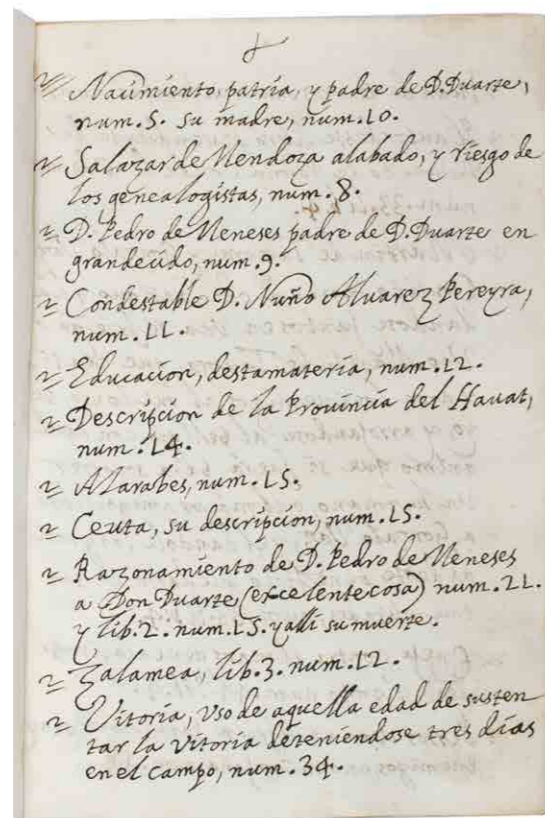 Nacimiento, patria, y padre de D. Duarte,
num. 5. su madre, num. 10.
Salazar de Mendoza alabado, y riesgo de
los genealogistas, num. 8.
D. Pedro de Meneses padre de D. Duarte en
grandecido, num. 9.
Condestable D. Nuño Alvarez Pereyra,
num. 11.
Educacion, desta materia, num. 12.
Descripcion de la Provincia del Havat,
num. 14.
Alarabes, num. 15.
Ceuta, su descripcion, num. 15.
Razonamiento de D. Pedro de Meneses
a Don Duarte (excelente cosa) num. 21.
y lib. 2. num. 15. y alli su muerte.
Zalamea, lib. 3. num. 12.
Vitoria, uso de aquella edad de susten
tar la vitoria deteniendose tres dias
en el campo, num. 34.